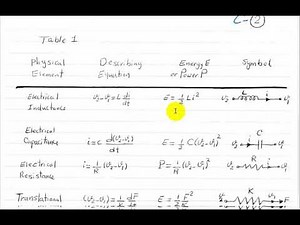 2-(2)
Table 1
Physical Element Describing Equation Energy E or Power P Symbol
Electrical Inductance v₂-v₁ = L di/dt E = 1/2 Li² v₂ L i v₁
Electrical Capacitance i = C d(v₂-v₁)/dt E = 1/2 C(v₂-v₁)² v₂ i C v₁
Electrical Resistance i = 1/R (v₂-v₁) P = 1/R (v₂-v₁)² v₂ R i v₁
Translational (v₂-v₁) = 1/K dF/dt E = 1/2 F²/K K F